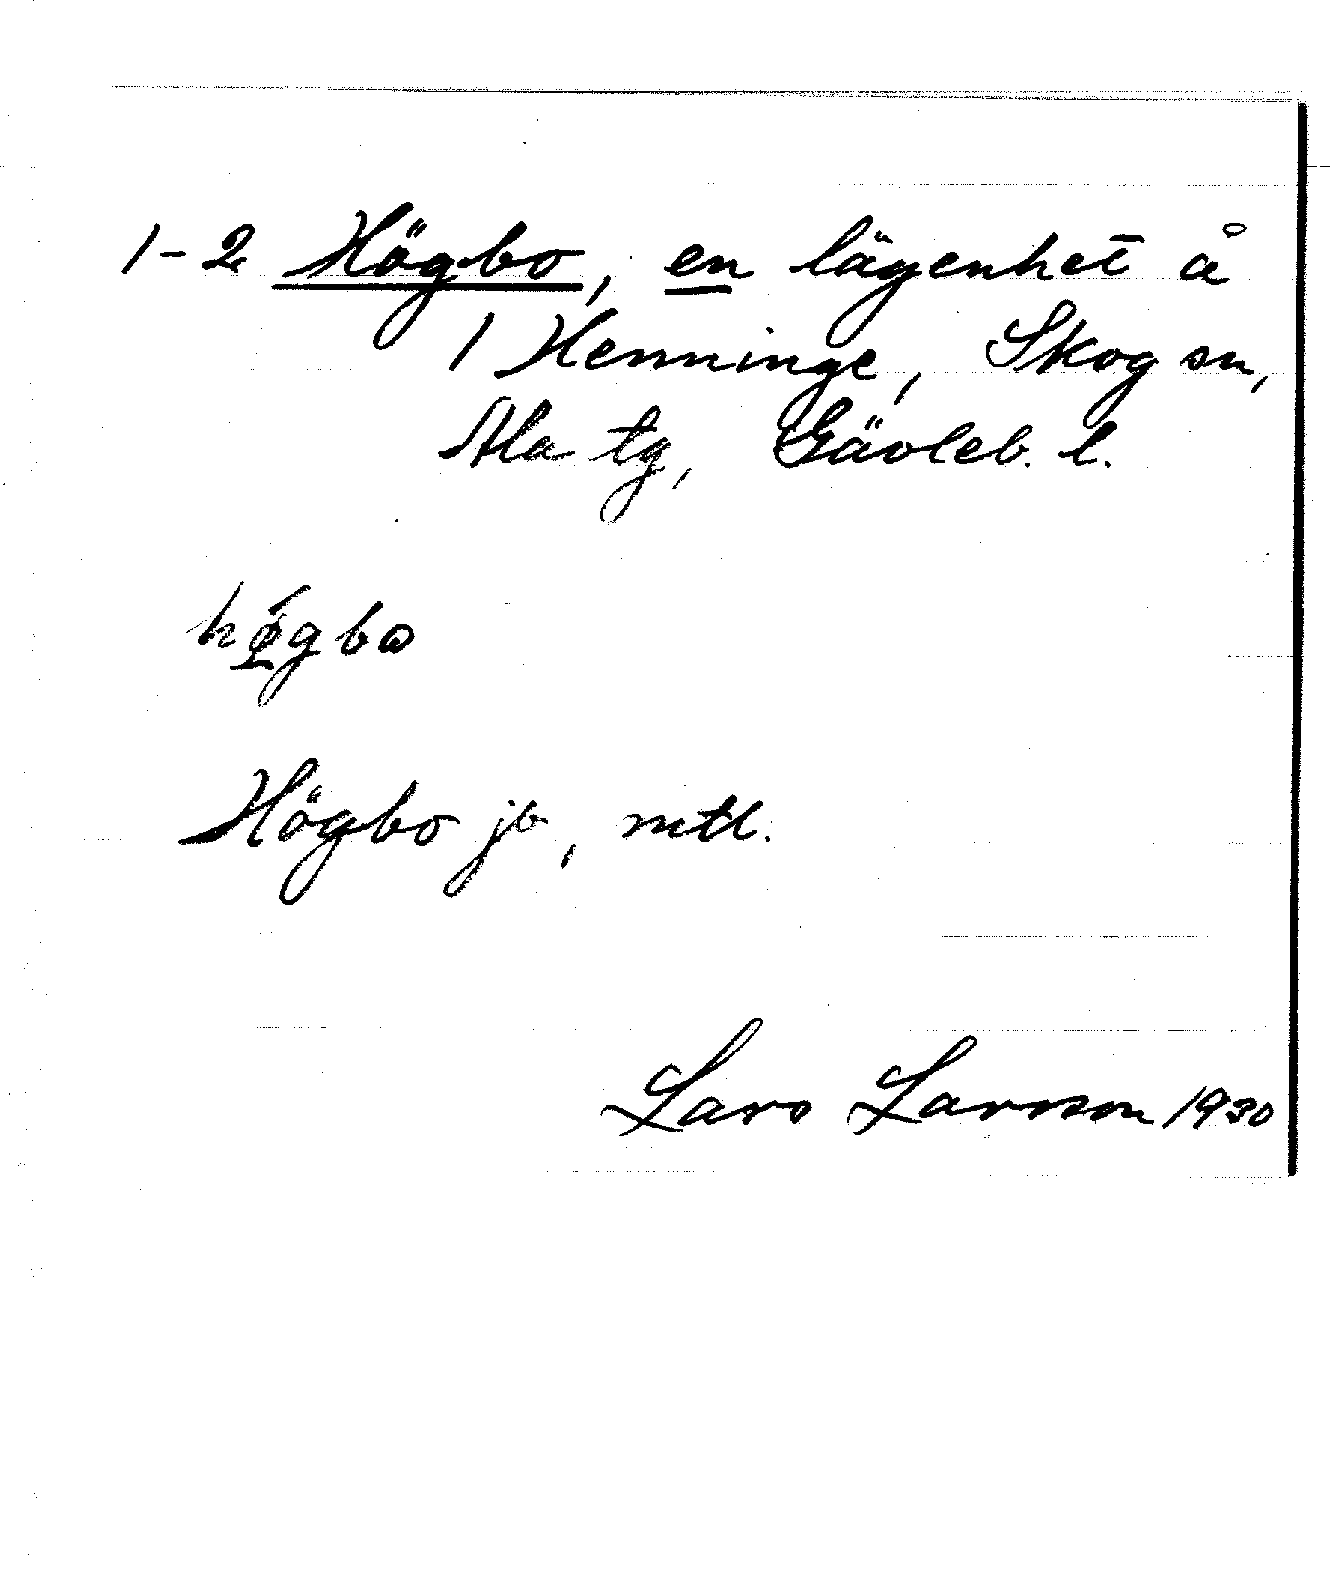 1-2 Högbo, en lägenhet å
1 Henninge, Skog sn,
Ala tg, Gävleb. l.
Högbo jb, mtl.
Lars Larsson 1930